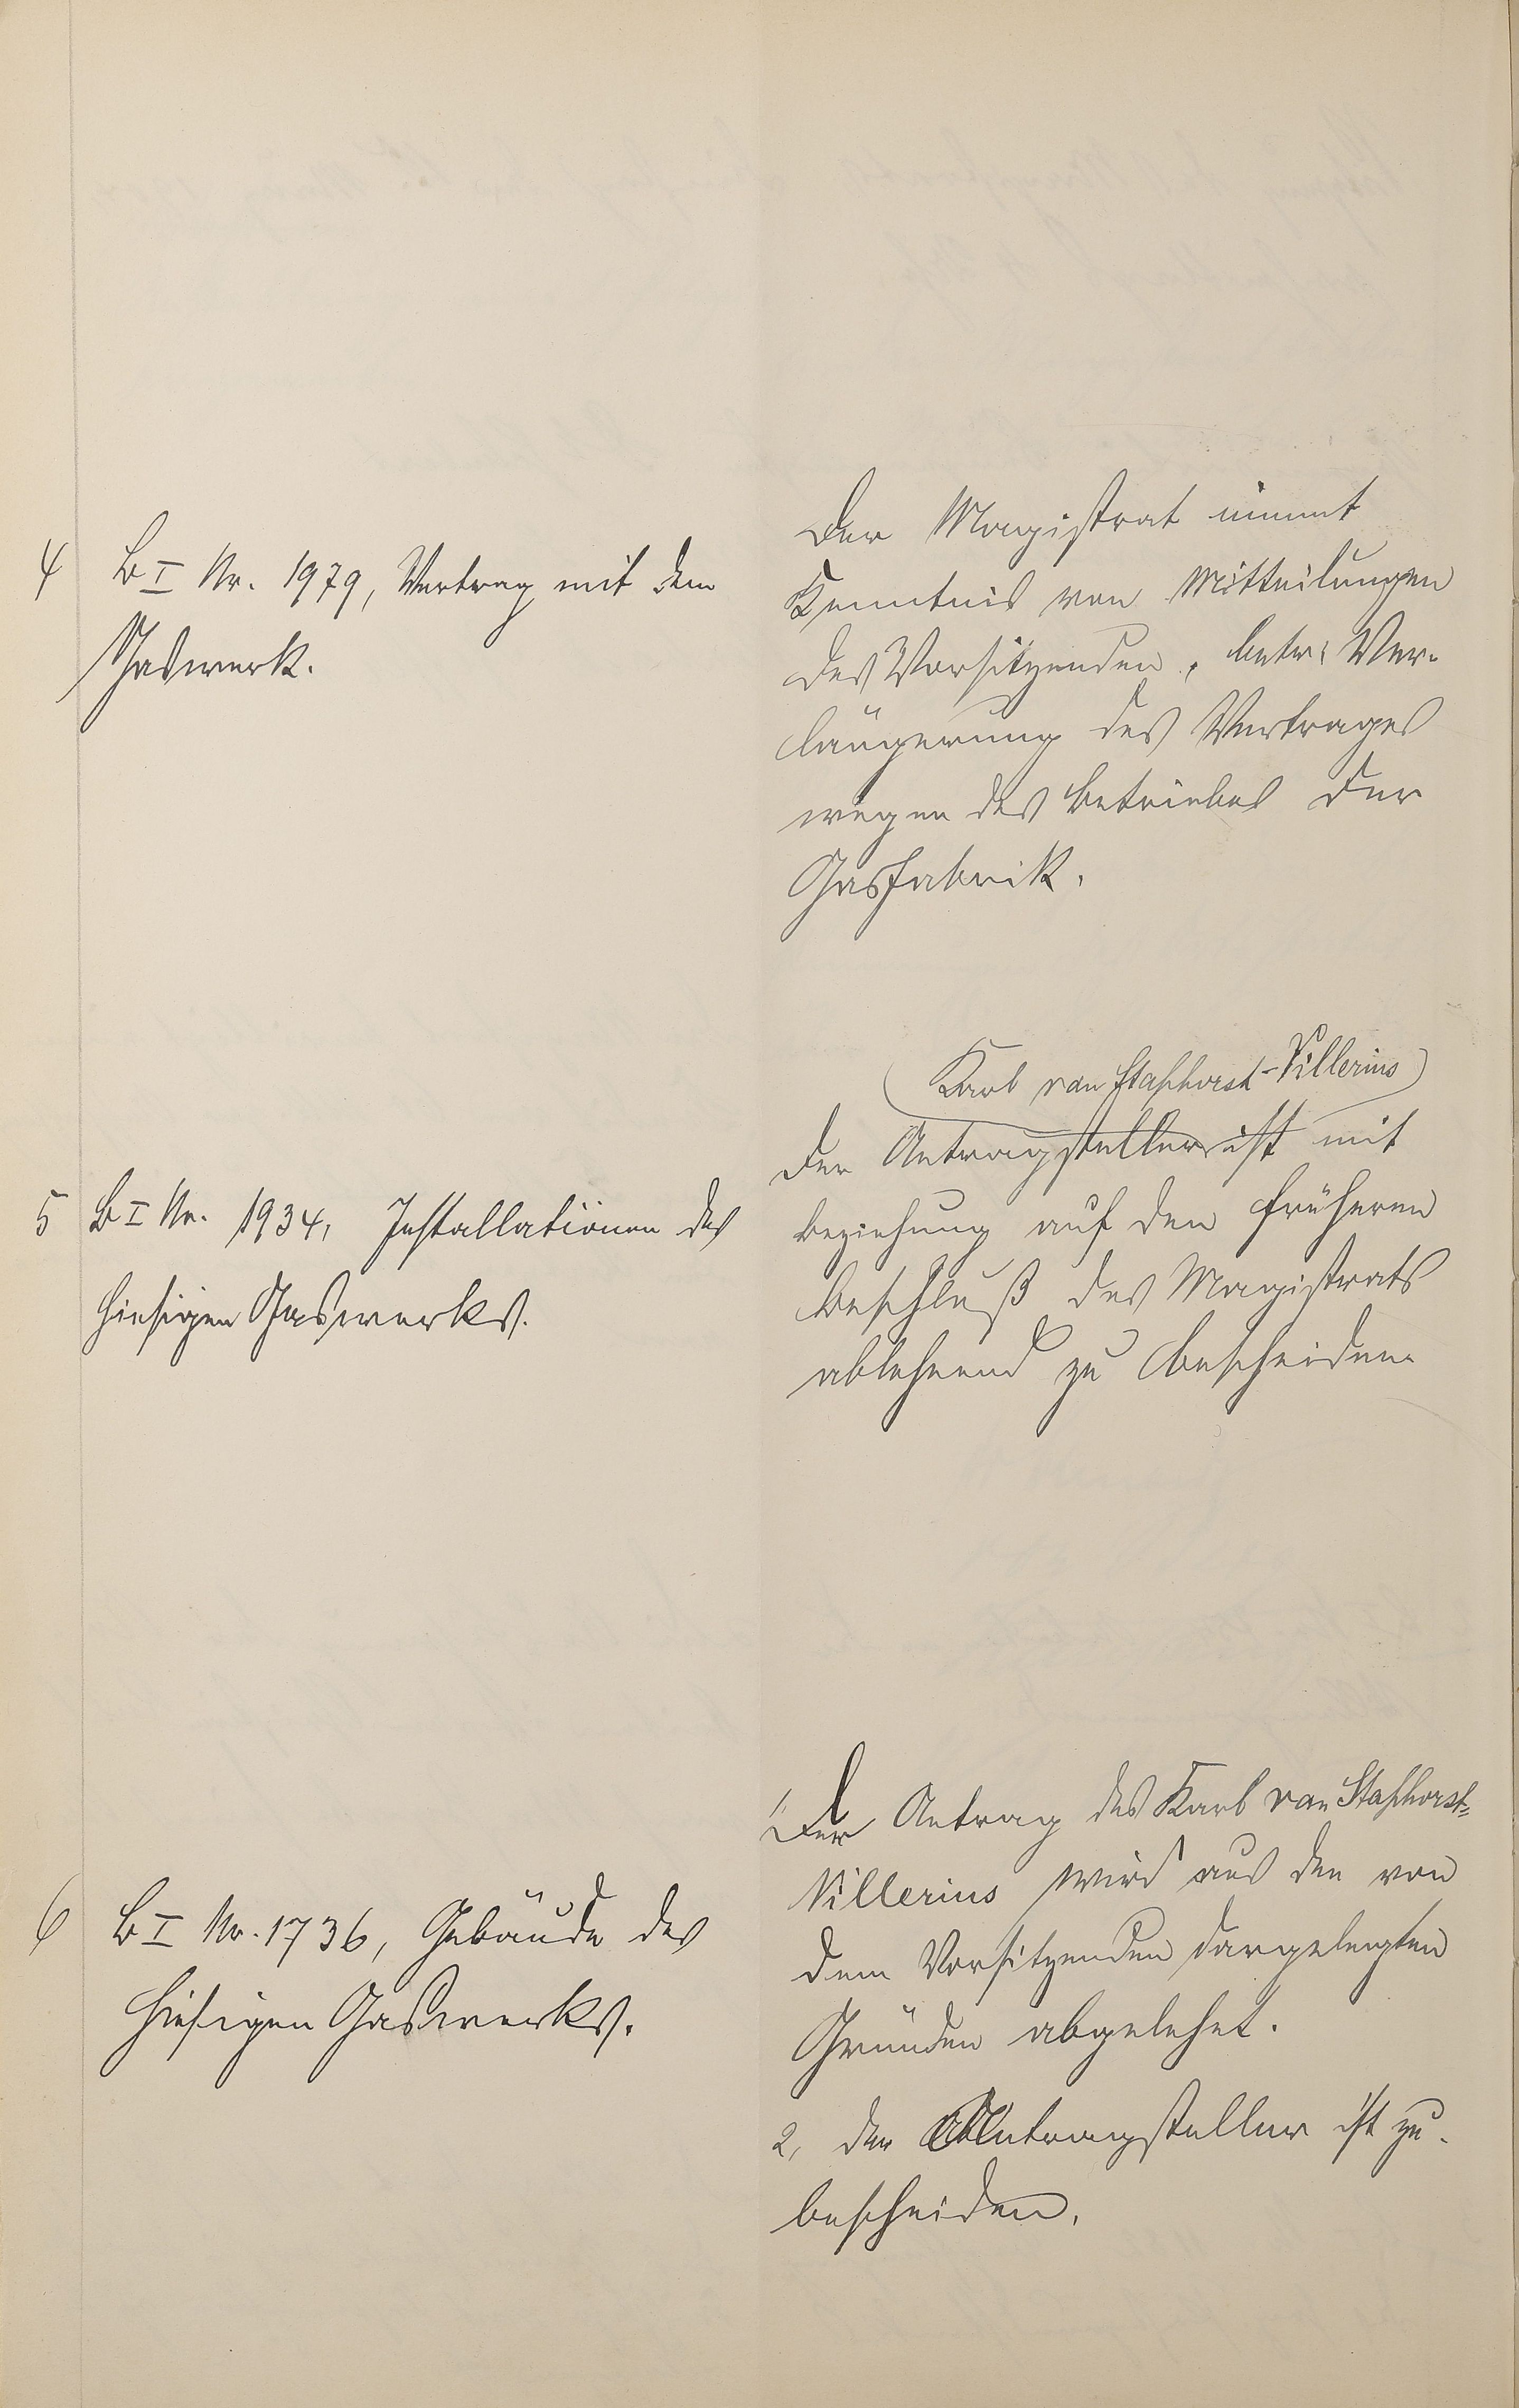 4 B I Nr. 1979, Vertrag mit dem
Gaswerk.
Der Magistrat nimmt
Kenntnis von Mitteilungen
des Vorsitzenden, betr. Ver-
längerung des Vertrages
wegen des Betriebes der
Gasfabrik.
5 B I Nr. 1934, Installationen des
hiesigen Gaswerks.
(Karl van Staphorst-Villerius)
Der Antragsteller ist mit
Beziehung auf den früheren
Beschluß des Magistrats
ablehnend zu bescheiden.
6 B I Nr. 1736, Gebäude des
hiesigen Gaswerks.
1, Der Antrag des Karl van Staphorst-
Villerius wird aus den von
dem Vorsitzenden dargelegten
Gründen abgelehnt.
2, der Antragsteller ist zu
bescheiden.